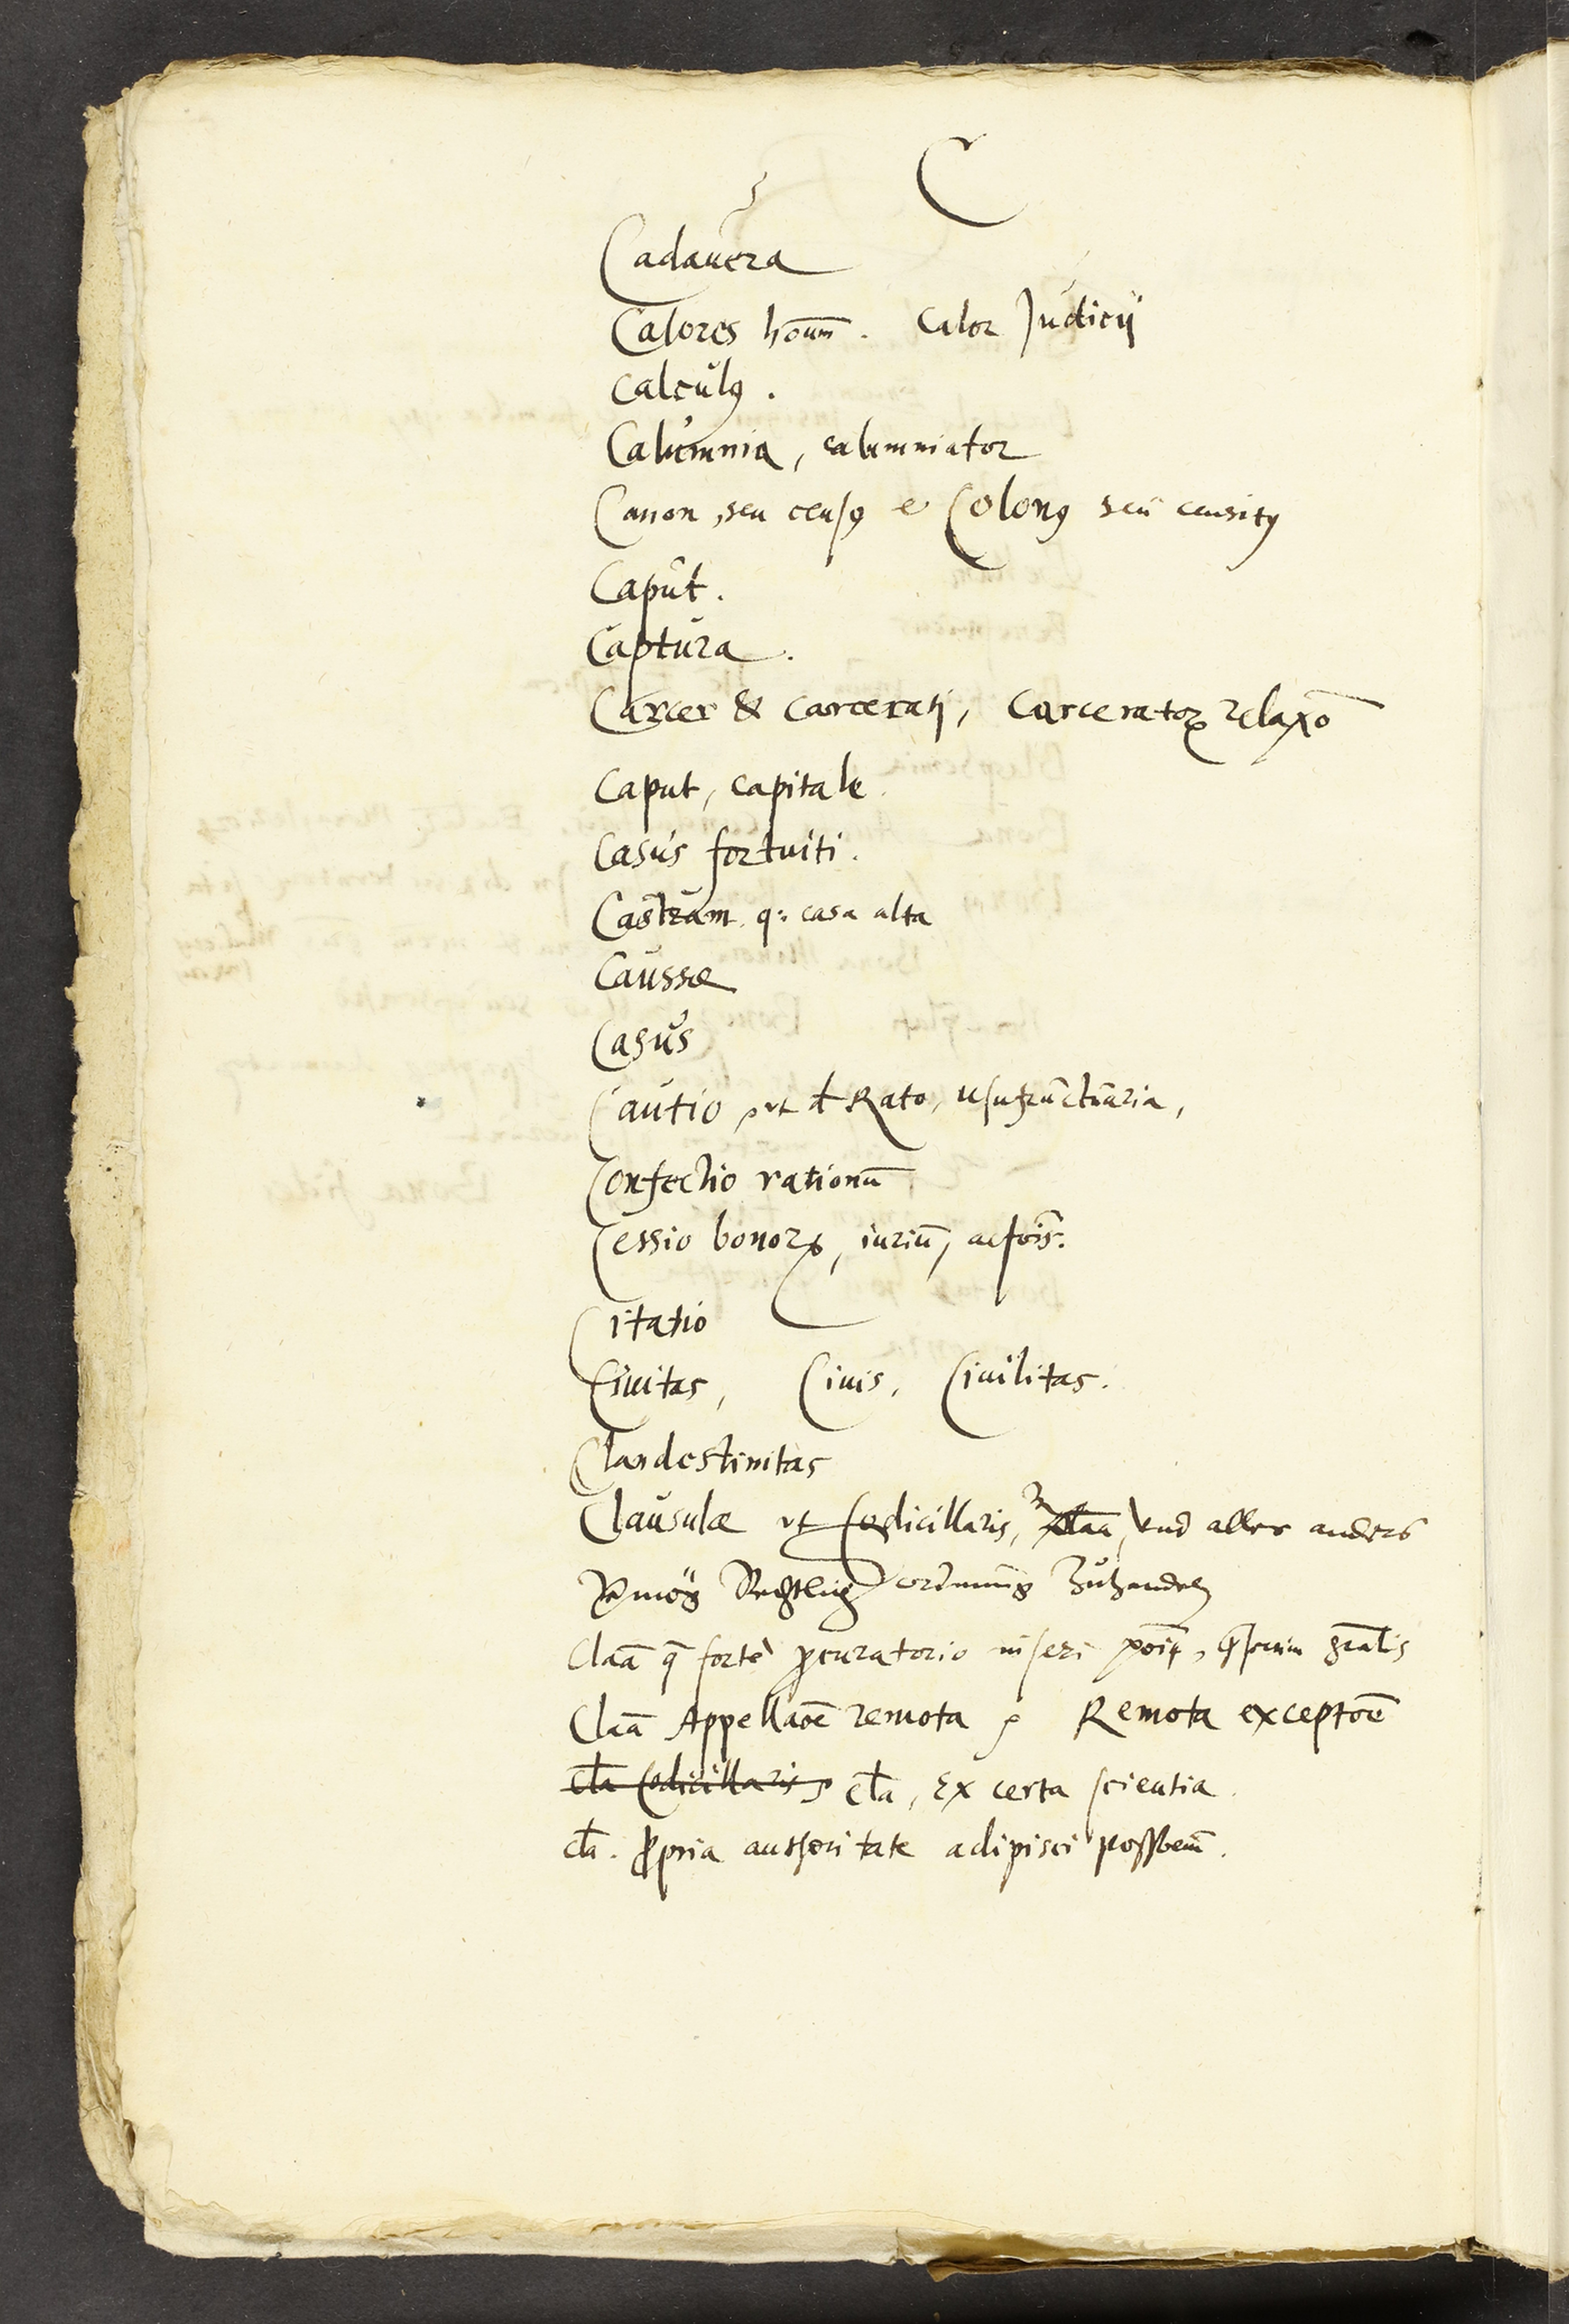 C
Cadauera
Calores hoūm. Calor Judicij
Calculꝯ.
Calumnia, calumniator
Canon, seu censꝯ e Colonꝯ seu censitꝯ
Caput.
Captura.
Carcer & carcerati, Carceratoꝝ relaxō
Caput, capitale
Casus fortuiti.
Castrum. q: casa alta
Caussæ
Casus
Cautio, vt đ Rato, usufructuaria,
Confectio rationū
Cessio bonoꝝ, iuriū, actōis.
Citatio
Ciuitas, Ciuis, Ciuilitas.
Clandestinitas
Clausulæ vt Codicillaris, Vnd alles anders
Vermög Rechtlich ordnung zuhandeln
Claā q̄ forte ꝓcuratorio inseri grālis
Claā Appellaōe remota, Remota exceptōe
cła Codicillaris, cła, Ex certa scientia.
cła. ꝓpria authoritate adipisci